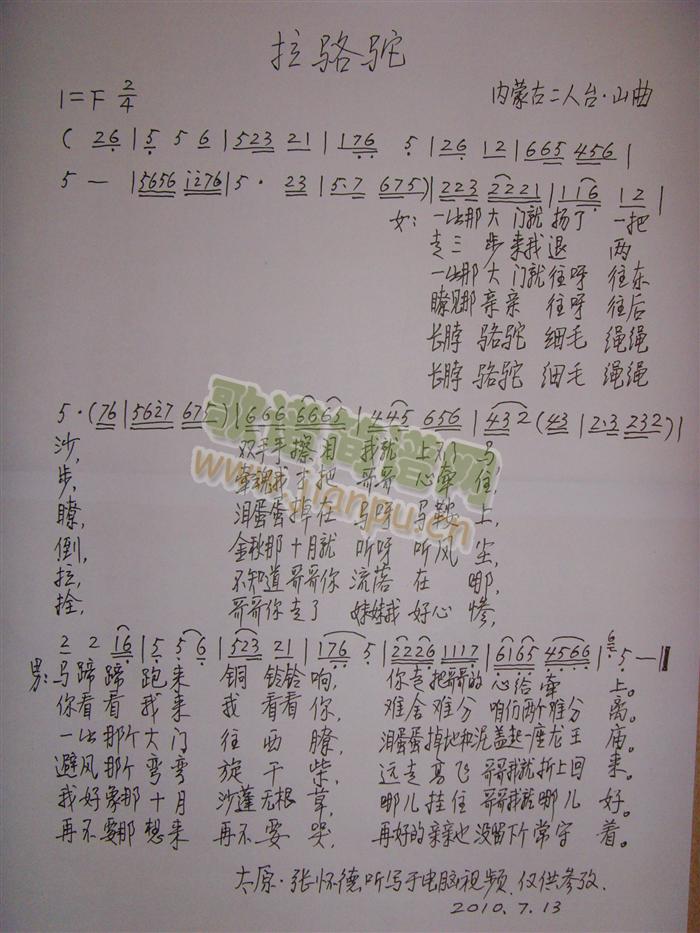 拉骆驼
1=F 2/4
内蒙古二人台·山曲
( 26 | 5 5 6 | 523 21 | 176 5 | 26 12 | 665 456 |
5 — | 5656 i276 | 5· 23 | 5·7 675 ) | 223 2221 | 116 12 |
女: 一出那大门就扬了一把
走三步来我退两
一出那大门就往呀往东
瞭见那亲亲往呀往后
长脖骆驼细毛绳绳
长脖骆驼细毛绳绳
5·(76 | 5627 675 ) | 666 6665 | 445 656 | 432 (43 | 2·3 232 ) |
沙, 双手手擦泪我就上了马
步, 牵魂我才把哥哥心牵住,
瞭, 泪蛋蛋掉在马呀马鞍上,
倒, 金秋那十月就听呀听风尘,
拉, 不知道哥哥你流落在哪,
拴, 哥哥你走了妹妹我好心惨,
2 2 16 | 5 5 6 | 523 21 | 176 5 | 2226 1117 | 6165 4566 | 5 — ‖
男: 马蹄蹄跑来铜铃铃响, 你走把哥哥的心给牵上。
你看看我来我看看你, 难舍难分咱们两个难分离。
一出那个大门往西瞭, 泪蛋蛋掉地和泥盖起一座龙王庙。
避风那个弯弯旋干柴, 远走高飞哥哥我就折上回来。
我好象那十月沙蓬无根草, 哪儿挂住哥哥我就哪儿好。
再不要那想来再不要哭, 再好的亲亲也没留下个常守着。
太原·张怀德听写于电脑视频,仅供参改.
2010.7.13
歌谱简谱网
www.jianpu.cn